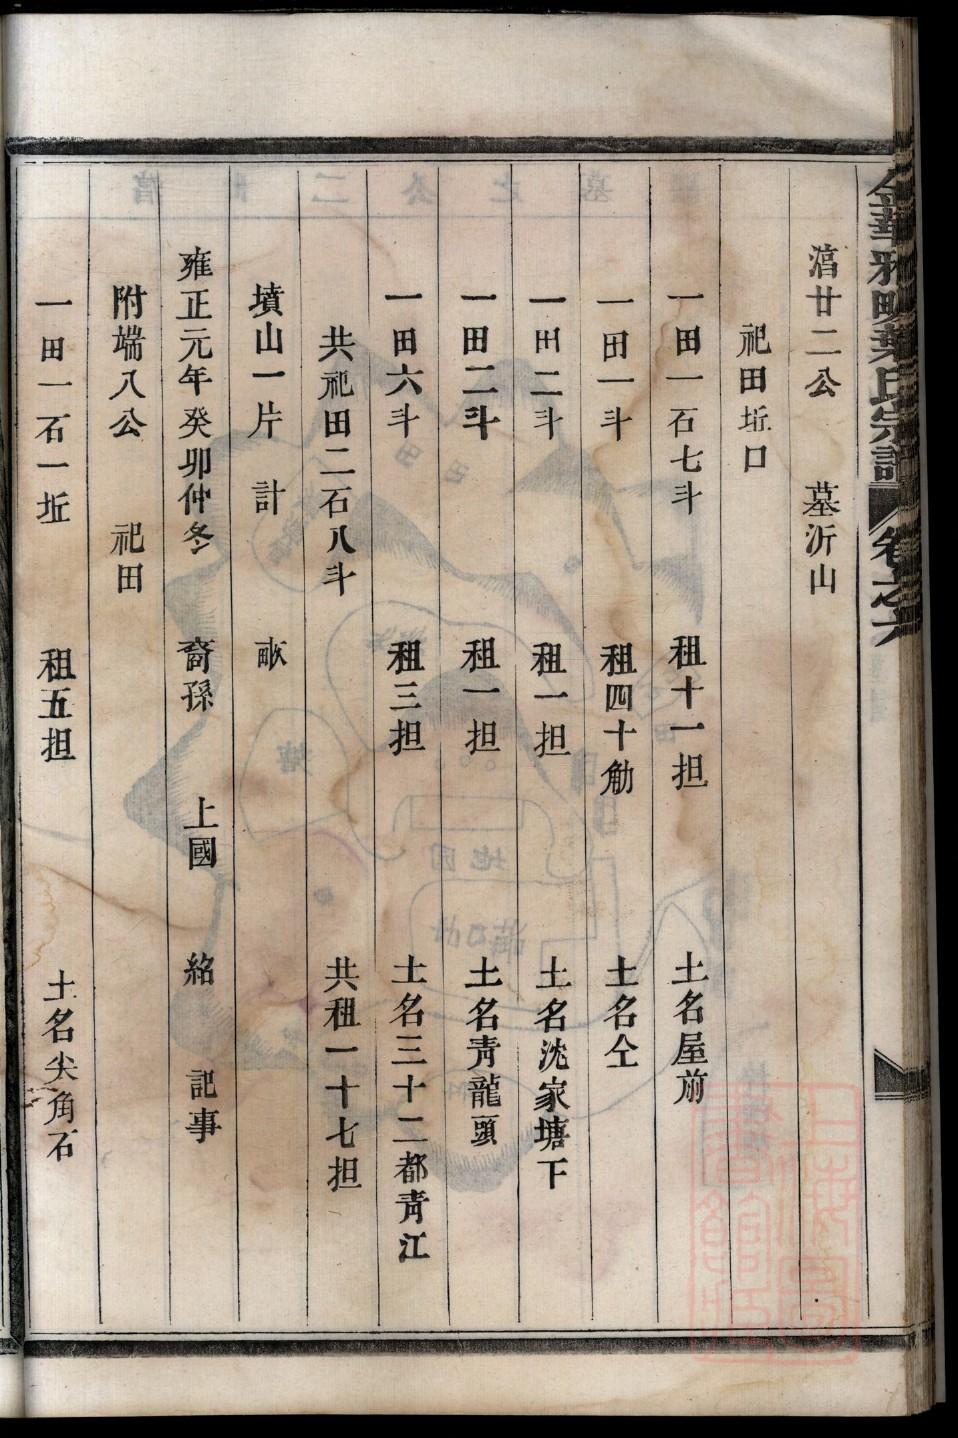 金華雅畈葉氏宗譜 卷之六
湻廿二公 墓沂山
祀田坵口
一田一石七斗 租十一担 土名屋前
一田一斗 租四十觔 土名仝
一田二斗 租一担 土名沈家塘下
一田二斗 租一担 土名青龍頭
一田六斗 租三担 土名三十二都青江
共祀田二石八斗 共租一十七担
墳山一片 計 畝
雍正元年癸卯仲冬 裔孫 上國 絡 記事
附端八公 祀田
一田一石一坵 租五担 土名尖角石